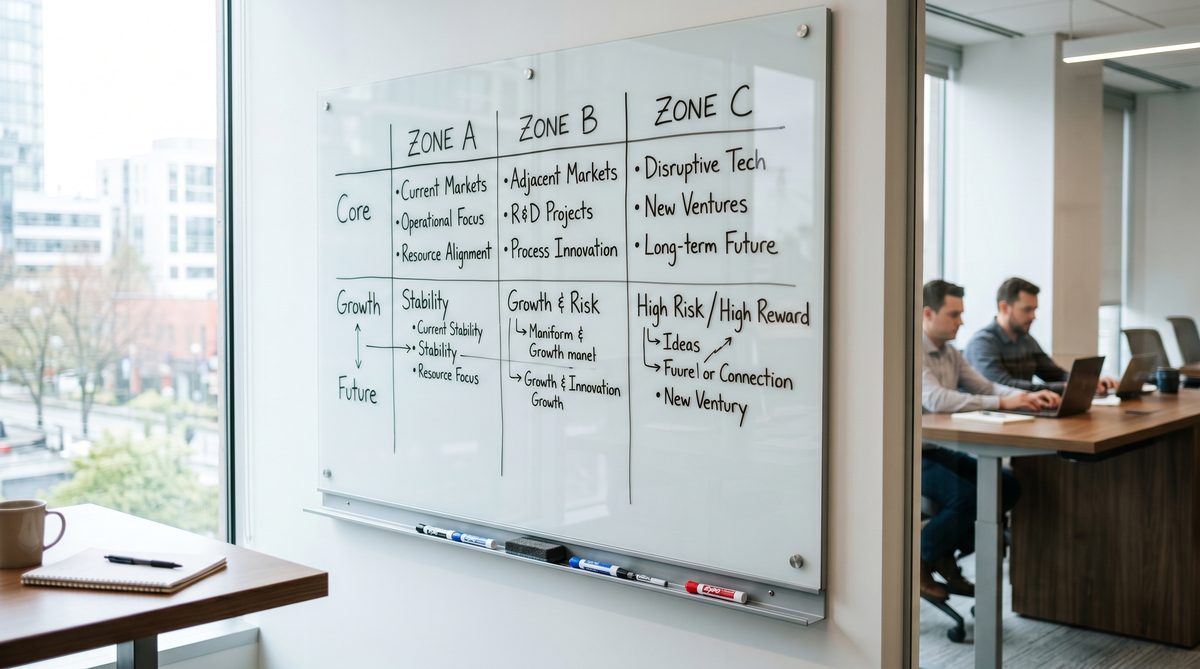 ZONE A
ZONE B
ZONE C
Core
• Current Markets
• Operational Focus
• Resource Alignment
• Adjacent Markets
• R&D Projects
• Process Innovation
• Disruptive Tech
• New Ventures
• Long-term Future
Growth
Future
Stability
• Current Stability
• Stability
• Resource Focus
Growth & Risk
Maniform &
Growth manet
Growth & Innovation
Growth
High Risk / High Reward
Ideas
Fuurel or Connection
• New Ventury
EXPO